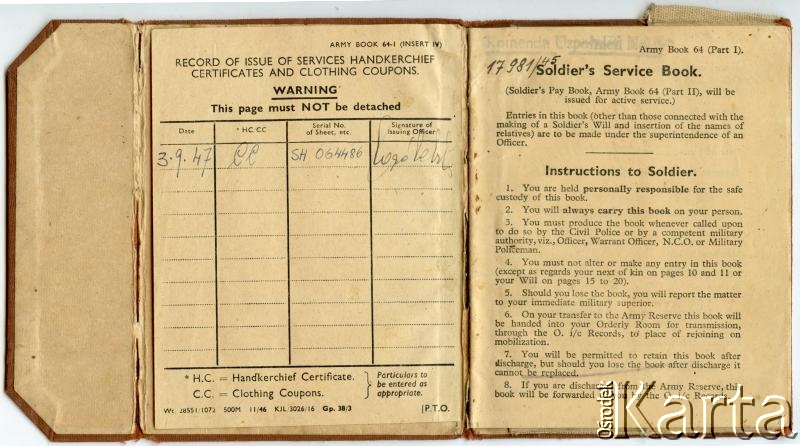 ARMY BOOK 64-1 (INSERT IV)
RECORD OF ISSUE OF SERVICES HANDKERCHIEF
CERTIFICATES AND CLOTHING COUPONS.
WARNING
This page must NOT be detached
Date
* HC/CC
Serial No.
of Sheet, etc.
Signature of
Issuing Officer
3.9.47
CC
SH 064486
* H.C. = Handkerchief Certificate.
C.C. = Clothing Coupons.
Particulars to
be entered as
appropriate.
Wt 28551/1072 500M 11/46 KJL/3026/16 Gp. 38/3
P.T.O.
Komenda
Army Book 64 (Part I).
17981/45
Soldier's Service Book.
(Soldier's Pay Book, Army Book 64 (Part II), will be
issued for active service.)
Entries in this book (other than those connected with the
making of a Soldier's Will and insertion of the names of
relatives) are to be made under the superintendence of an
Officer.
Instructions to Soldier.
1. You are held personally responsible for the safe
custody of this book.
2. You will always carry this book on your person.
3. You must produce the book whenever called upon
to do so by the Civil Police or by a competent military
authority, viz., Officer, Warrant Officer, N.C.O. or Military
Policeman.
4. You must not alter or make any entry in this book
(except as regards your next of kin on pages 10 and 11 or
your Will on pages 15 to 20).
5. Should you lose the book, you will report the matter
to your immediate military superior.
6. On your transfer to the Army Reserve this book will
be handed into your Orderly Room for transmission,
through the O. i/c Records, to place of rejoining on
mobilization.
7. You will be permitted to retain this book after
discharge, but should you lose the book after discharge it
cannot be replaced.
8. If you are discharged from the Army Reserve, this
book will be forwarded to you by the O. i/c Records.
Ośrodek
Karta